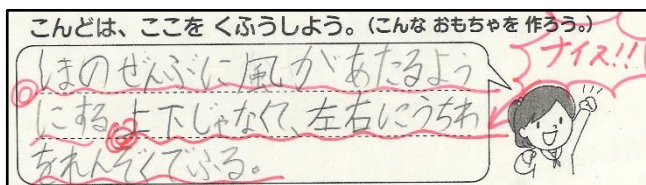 こんどは、ここを くふうしよう。(こんな おもちゃを 作ろう。)
ナイス!!
ほのぜんぶに風があたるよう
にする。上下じゃなくて、左右にうちわ
をれんぞくでふる。